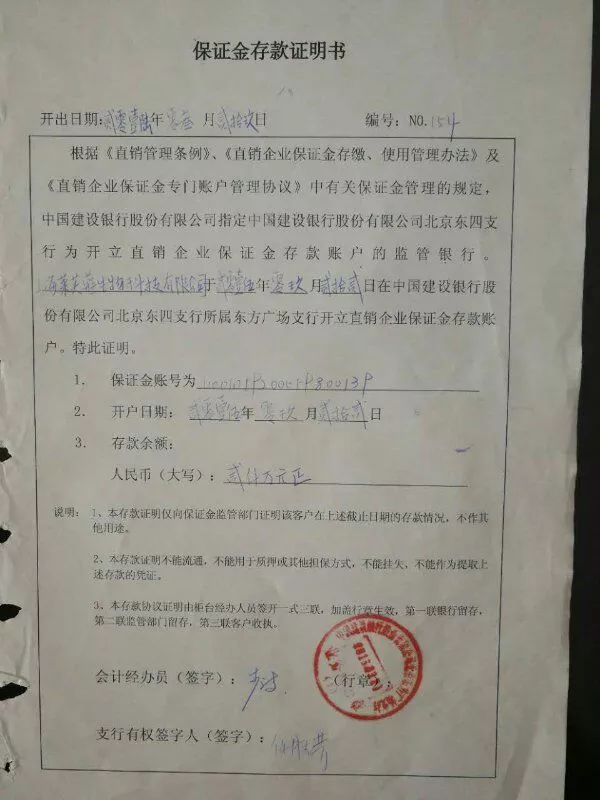 保证金存款证明书
开出日期:贰零壹陆年零叁月贰拾玖日 编号:NO.154
根据《直销管理条例》、《直销企业保证金存缴、使用管理办法》及
《直销企业保证金专门账户管理协议》中有关保证金管理的规定，
中国建设银行股份有限公司指定中国建设银行股份有限公司北京东四支
行为开立直销企业保证金存款账户的监管银行。
生物科技有限公司于贰零壹伍年零玖月贰拾贰日在中国建设银行股
份有限公司北京东四支行所属东方广场支行开立直销企业保证金存款账
户。特此证明。
1. 保证金账号为
2. 开户日期：贰零壹伍年零玖月贰拾贰日
3. 存款余额：
人民币（大写）：贰仟万元正
说明：1、本存款证明仅向保证金监管部门证明该客户在上述截止日期的存款情况，不作其
他用途。
2、本存款证明不能流通，不能用于质押或其他担保方式，不能挂失、不能作为提取上
述存款的凭证。
3、本存款协议证明由柜台经办人员签开一式三联，加盖行章生效，第一联银行留存，
第二联监管部门留存，第三联客户收执。
会计经办员（签字）： （行章）：
支行有权签字人（签字）：